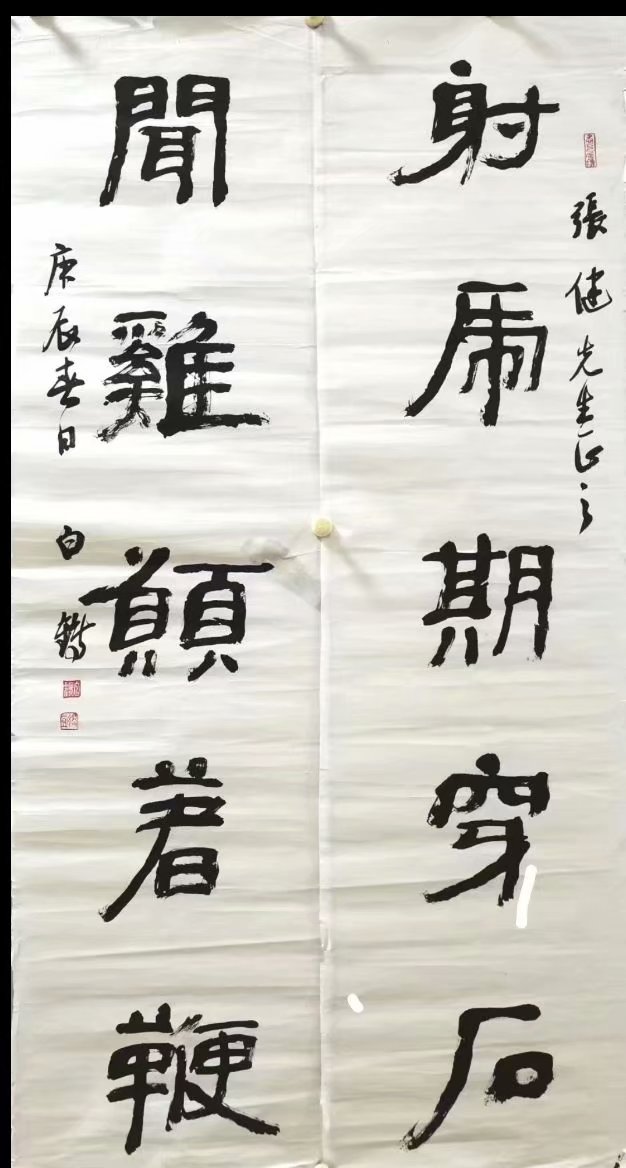 張健先生正之
射虎期穿石
聞雞願著鞭
庚辰春日 白鐸